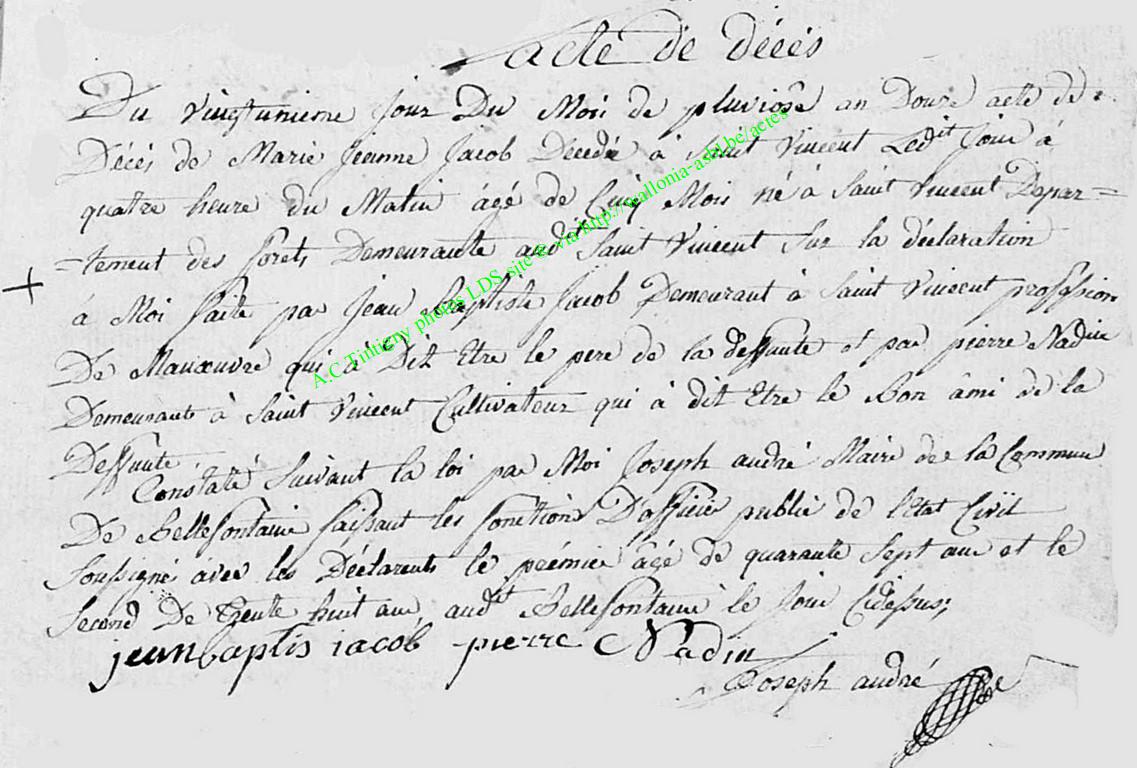 acte de décés
Du vingtunieme jour Du Mois de pluviose an Douze acte de
Décés de Marie Jeanne Jacob Décedée à Saint Vincent Ledit Jour à
quatre heure du Matin âgé de Cinq Mois né à Saint Vincent Depar=
=tement des forets Demeurante audit Saint Vincent Sur la déclaration
à Moi faite par Jean Baptiste Jacob Demeurant à Saint Vincent profession
De Manœuvre qui à Dit Etre le pere de la deffunte et par pierre Nadin
Demeurant à Saint Vincent Cultivateur qui à dit Etre le Bon âmi de la
Deffunte
Constaté Suivant la loi par Moi Joseph andré Maire de la Commune
De Bellefontaine faissant les fonctions D'officier public de l'Etat Civil
Soussigné avec les Déclarants le premier âgé de quarante Sept ans et le
Second De trente huit ans audt Bellefontaine le Jour Cidessus;
jean baptis iacob pierre Nadin
Joseph andré
A.C.Tintigny photos LDS site & via http://wallonia-asbl.be/actes